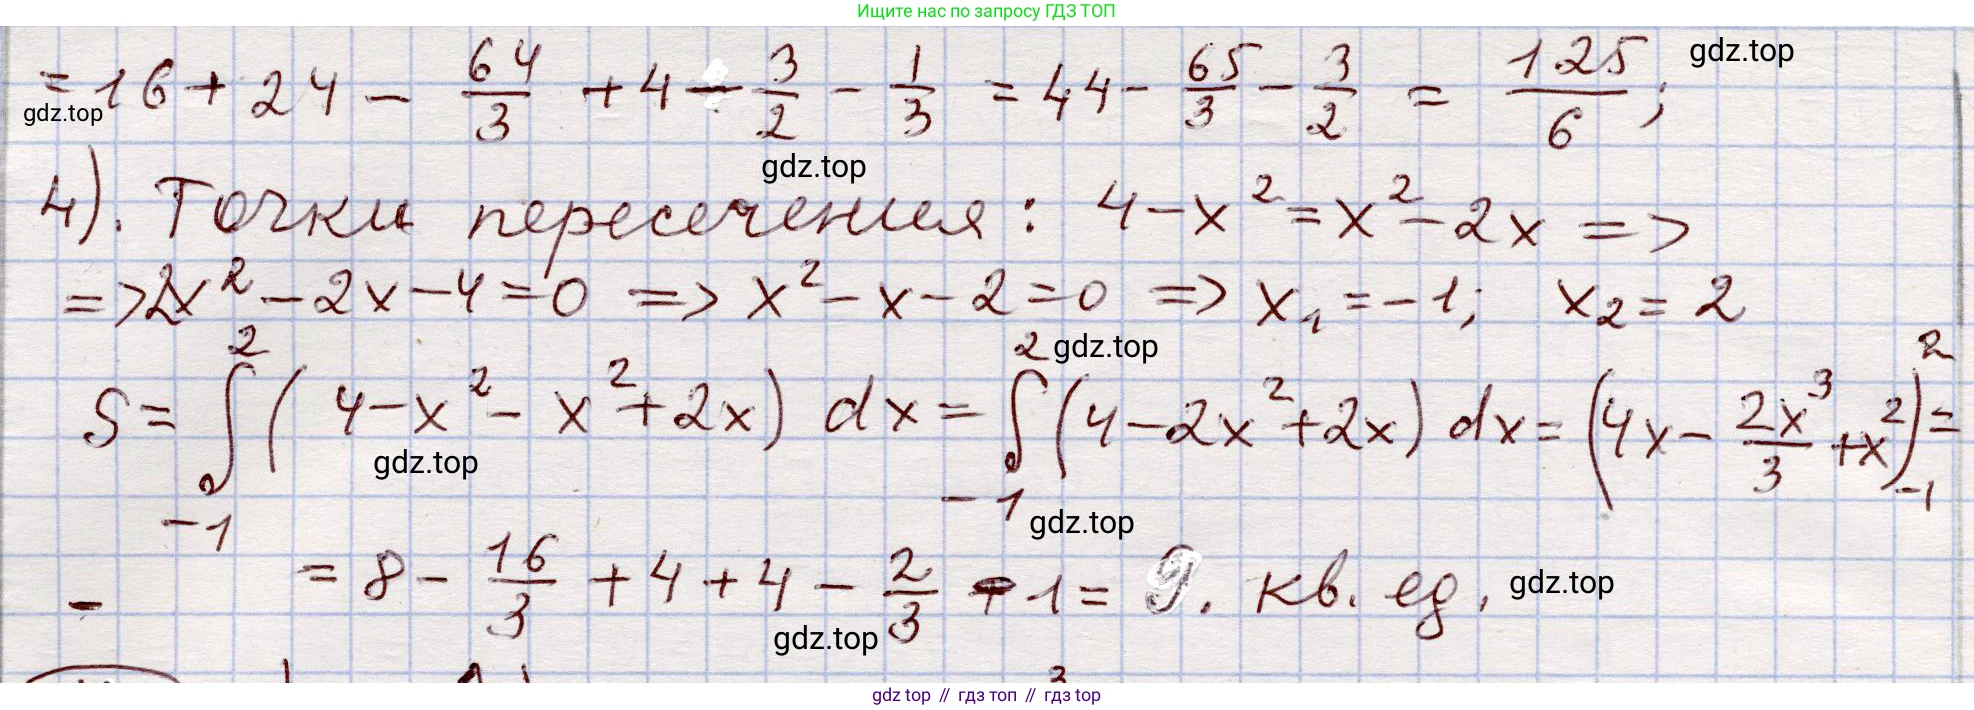 Ищите нас по запросу ГДЗ ТОП
= 16 + 24 - 64/3 + 4 - 3/2 - 1/3 = 44 - 65/3 - 3/2 = 125/6 ; gdz.top
gdz.top
gdz.top
4). Точки пересечения: 4 - x² = x² - 2x =>
=> 2x² - 2x - 4 = 0 => x² - x - 2 = 0 => x₁ = -1; x₂ = 2
gdz.top
S = ∫₋₁² (4 - x² - x² + 2x) dx = ∫₋₁² (4 - 2x² + 2x) dx = (4x - 2x³/3 + x²)₋₁² =
gdz.top
gdz.top
= 8 - 16/3 + 4 + 4 - 2/3 - 1 = 9. кв. ед. gdz.top
gdz.top
gdz top // гдз топ // гдз top